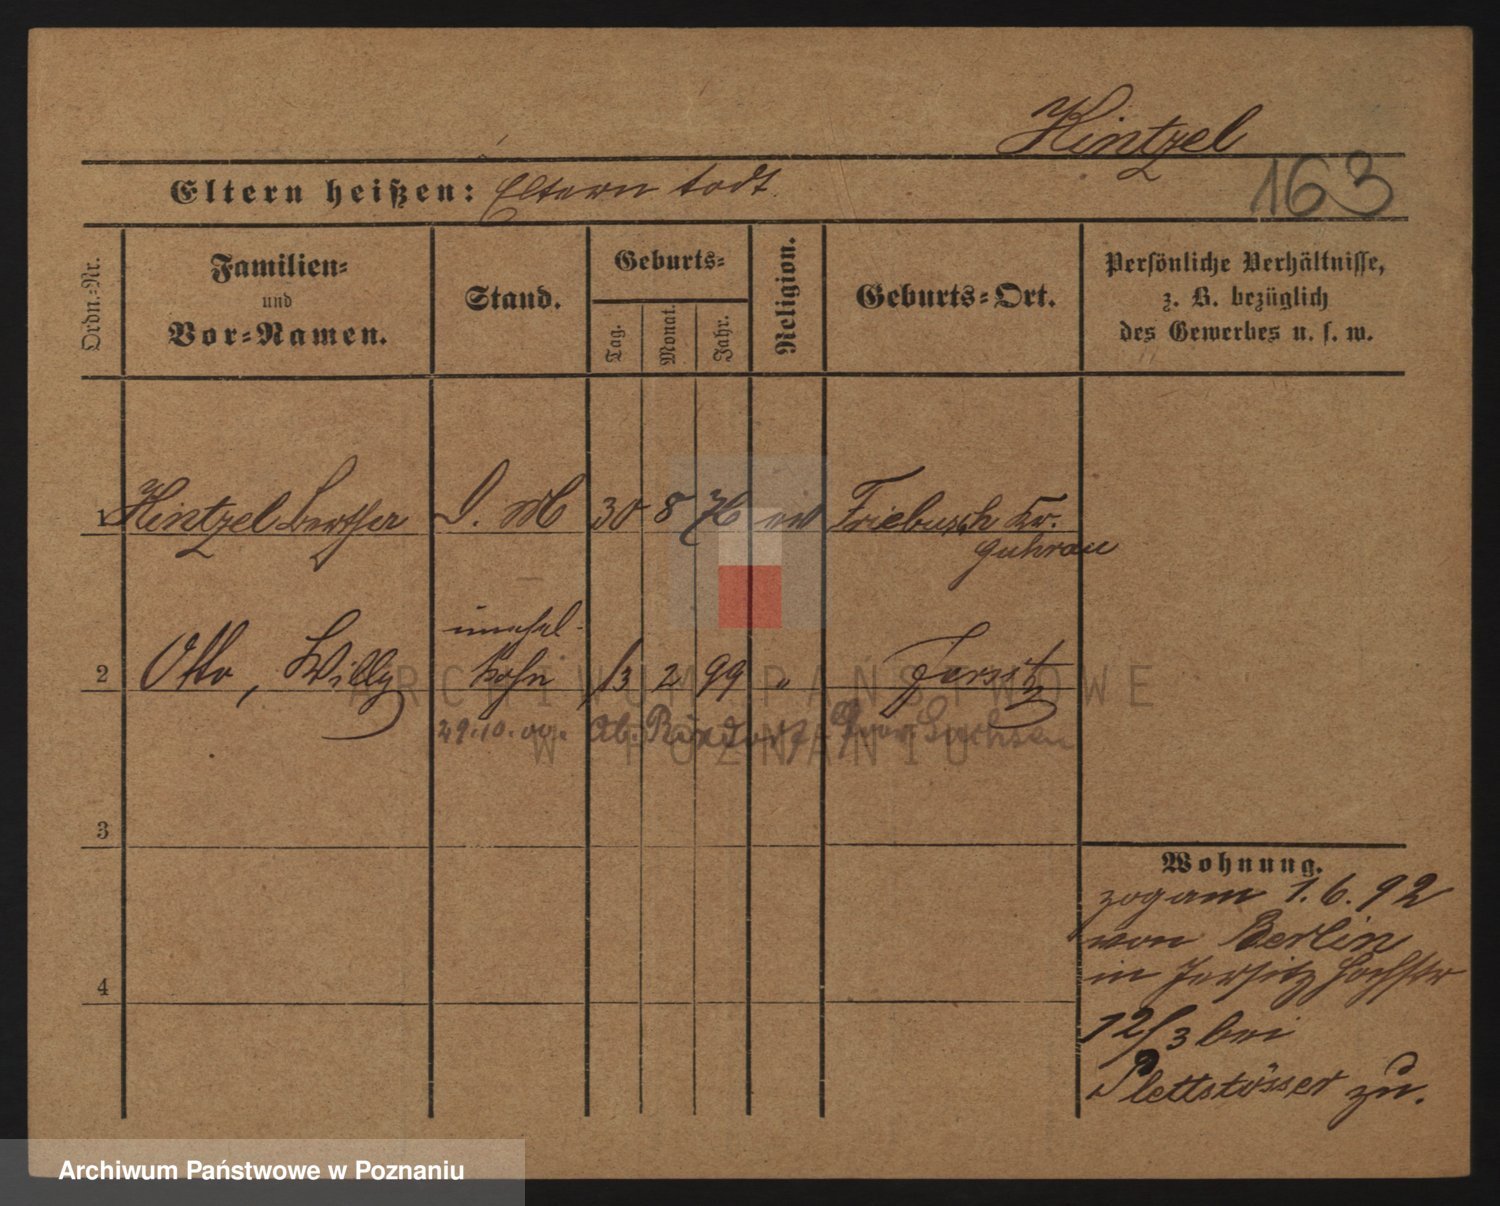 Hintzel
163
Eltern heißen: Eltern todt.
Ordn.-Nr.
Familien-
und
Vor-Namen.
Stand.
Geburts-
Tag.
Monat.
Jahr.
Religion.
Geburts-Ort.
Persönliche Verhältnisse,
z. B. bezüglich
des Gewerbes u. s. w.
1 Hintzel Bertha D. M 30 8 76 ev Friebusch Kr.
Guhrau
unehel.
2 Otto, Willy Sohn 13 2 99 " Jersitz
29.10.00. Ab. Prov. Sachsen
3
4
Wohnung.
zog am 1.6.92
von Berlin
in Jersitz
12/3 bei
Plettstösser zu.
ARCHIWUM PAŃSTWOWE
W POZNANIU
Archiwum Państwowe w Poznaniu